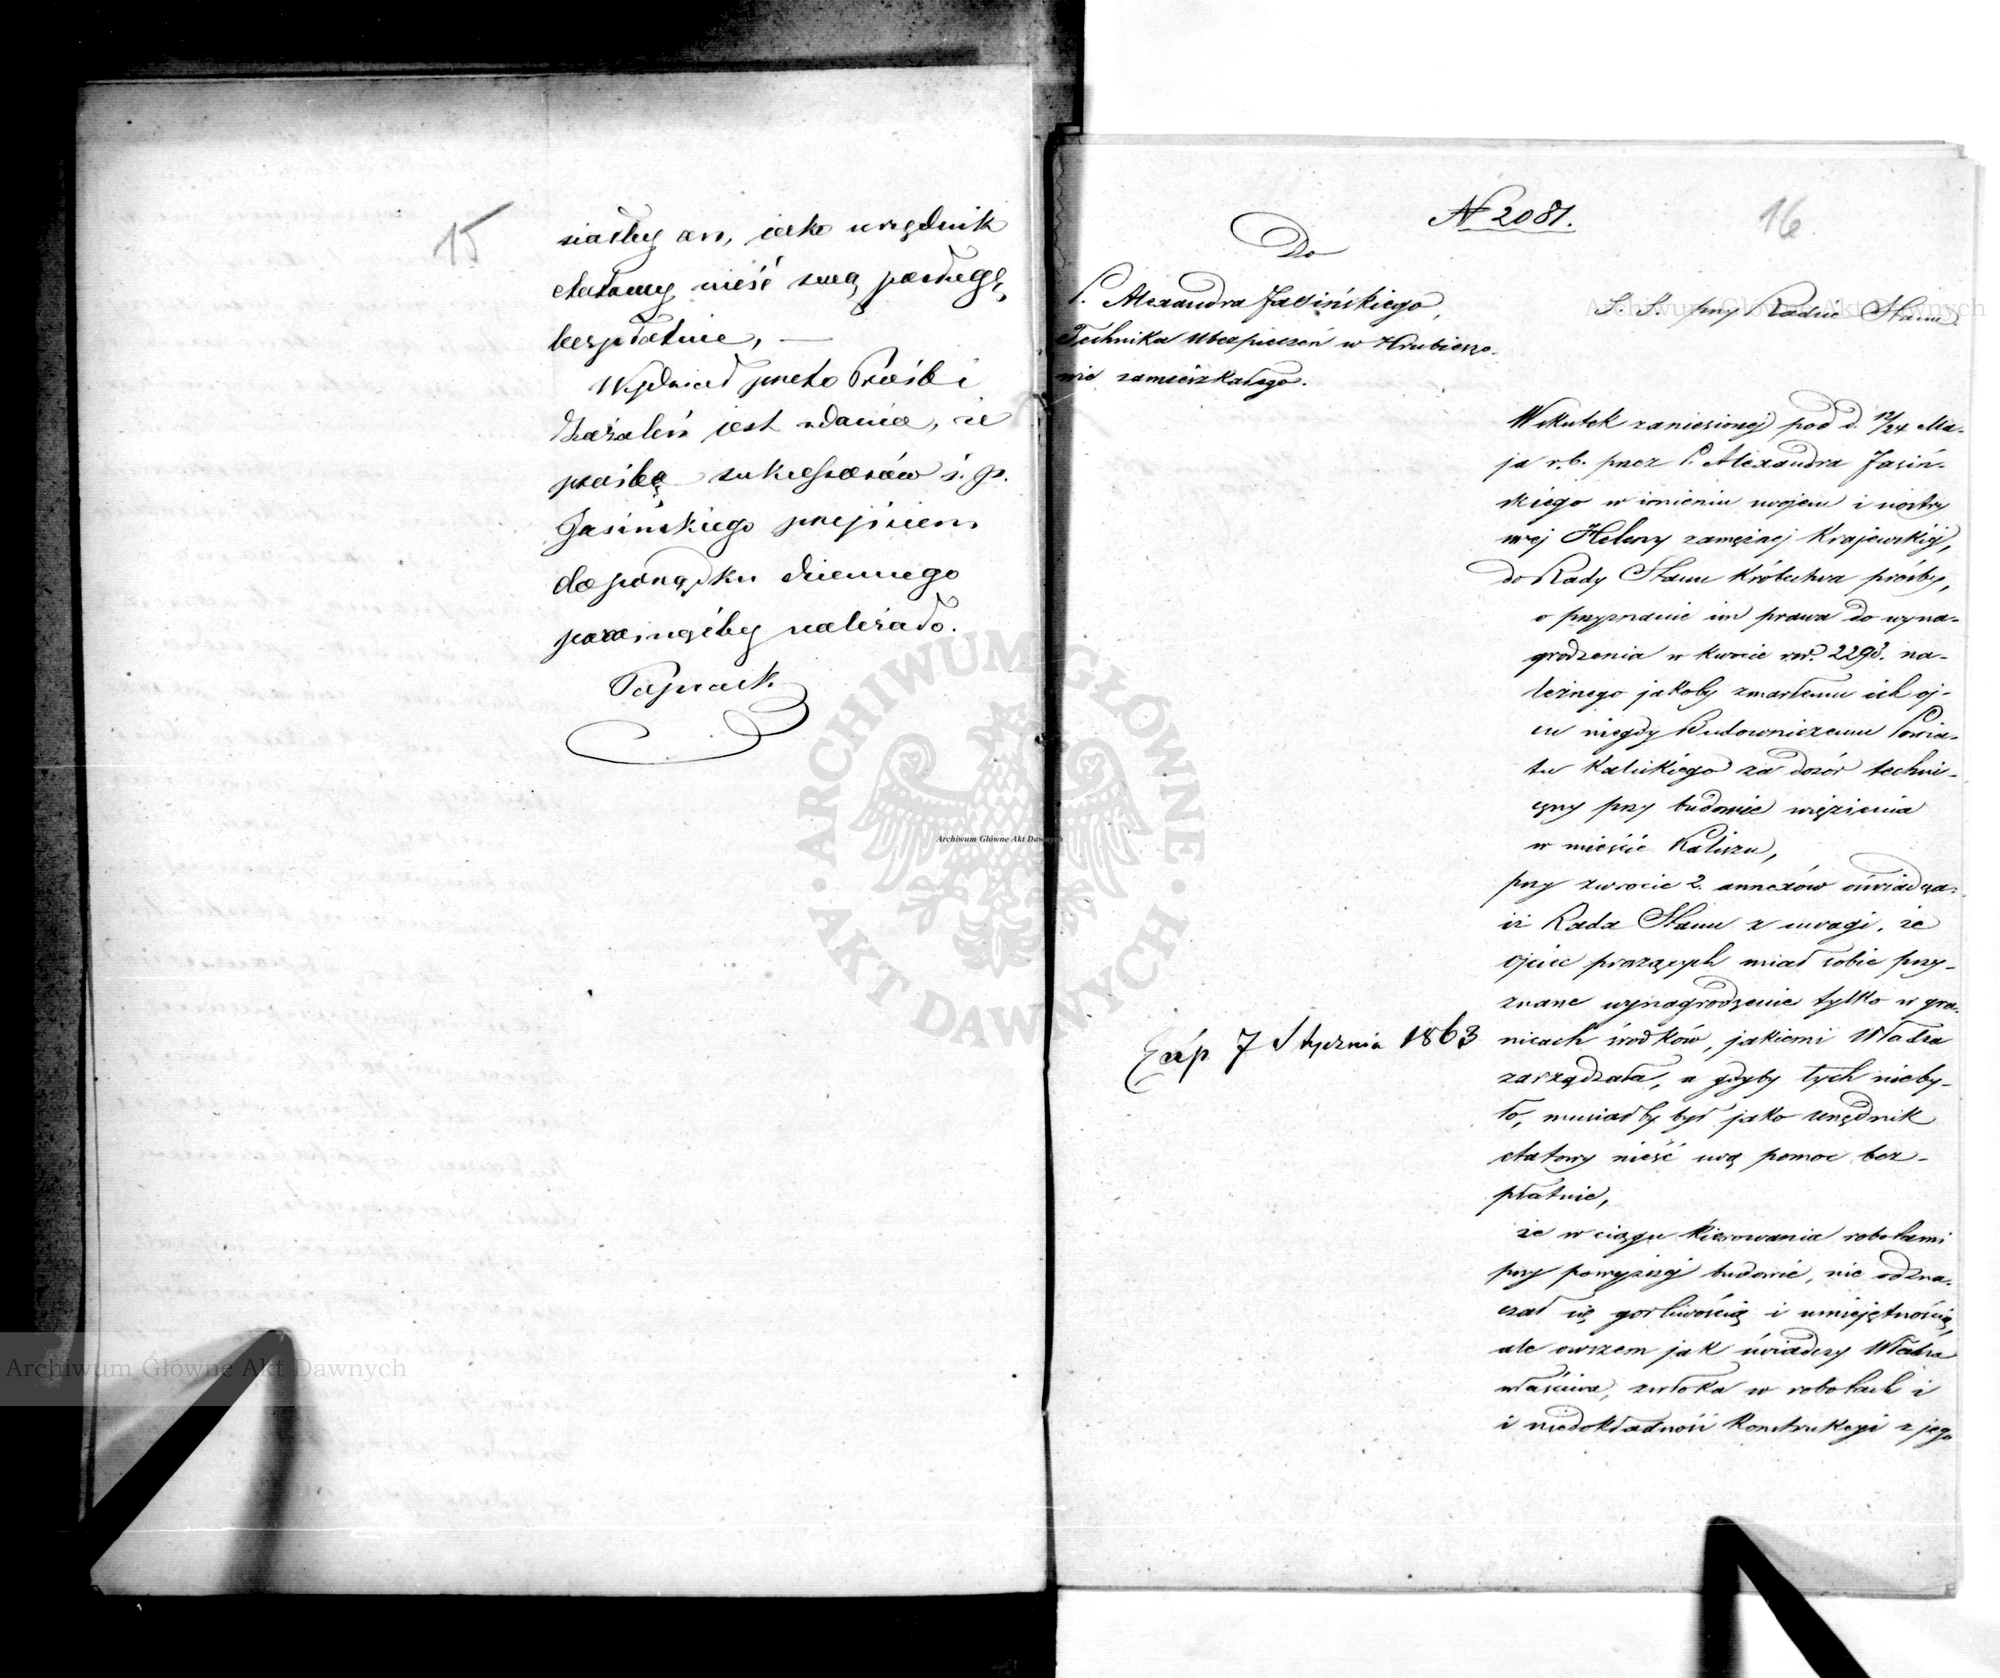 15
siałby on, jako urzędnik
etatowy nieść swą posługę,
bezpłatnie, —
Wydział przeto Próśb i
Zażaleń jest zdania, że
prośbę sukcessorów ś. p.
Jasińskiego przejściem
do porządku dziennego
pominąćby należało.
№ 2081.
16
Do
P. Alexandra Jasińskiego,
Technika Ubezpieczeń w Hrubieszo-
wie zamieszkałego.
S. S. przy Radzie Stanu
Wskutek zaniesionej pod d. 12/24 Ma-
ja r.b. przez P. Alexandra Jasiń-
skiego w imieniu swojem i siostry
swej Heleny zamężnej Krajewskiej,
do Rady Stanu Królestwa prośby,
o przyznanie im prawa do wyna-
grodzenia w kwocie rsr. 2293. na-
leżnego jakoby zmarłemu ich oj-
cu niegdy Budowniczemu Powia-
tu Kaliskiego za dozór techni-
czny przy budowie więzienia
w mieście Kaliszu,
przy zwrocie 2. annexów oświadcza,
iż Rada Stanu z uwagi, że
ojciec proszących miał sobie przy-
znane wynagrodzenie tylko w gra-
nicach środków, jakiemi Władza
zarządzała, a gdyby tych nieby-
ło, musiałby być jako urzędnik
etatowy nieść swą pomoc bez-
płatnie,
że w ciągu kierowania robotami
przy powyższej budowie, nie odzna-
czał się gorliwością i umiejętnością,
ale owszem jak świadczy Władza
właściwa, zwłoka w robotach i
i niedokładność Konstrukcyi z jego
Exp 7 Stycznia 1863
ARCHIWUM GŁÓWNE
AKT DAWNYCH
Archiwum Główne Akt Dawnych
Archiwum Główne Akt Dawnych
Archiwum Główne Akt Dawnych